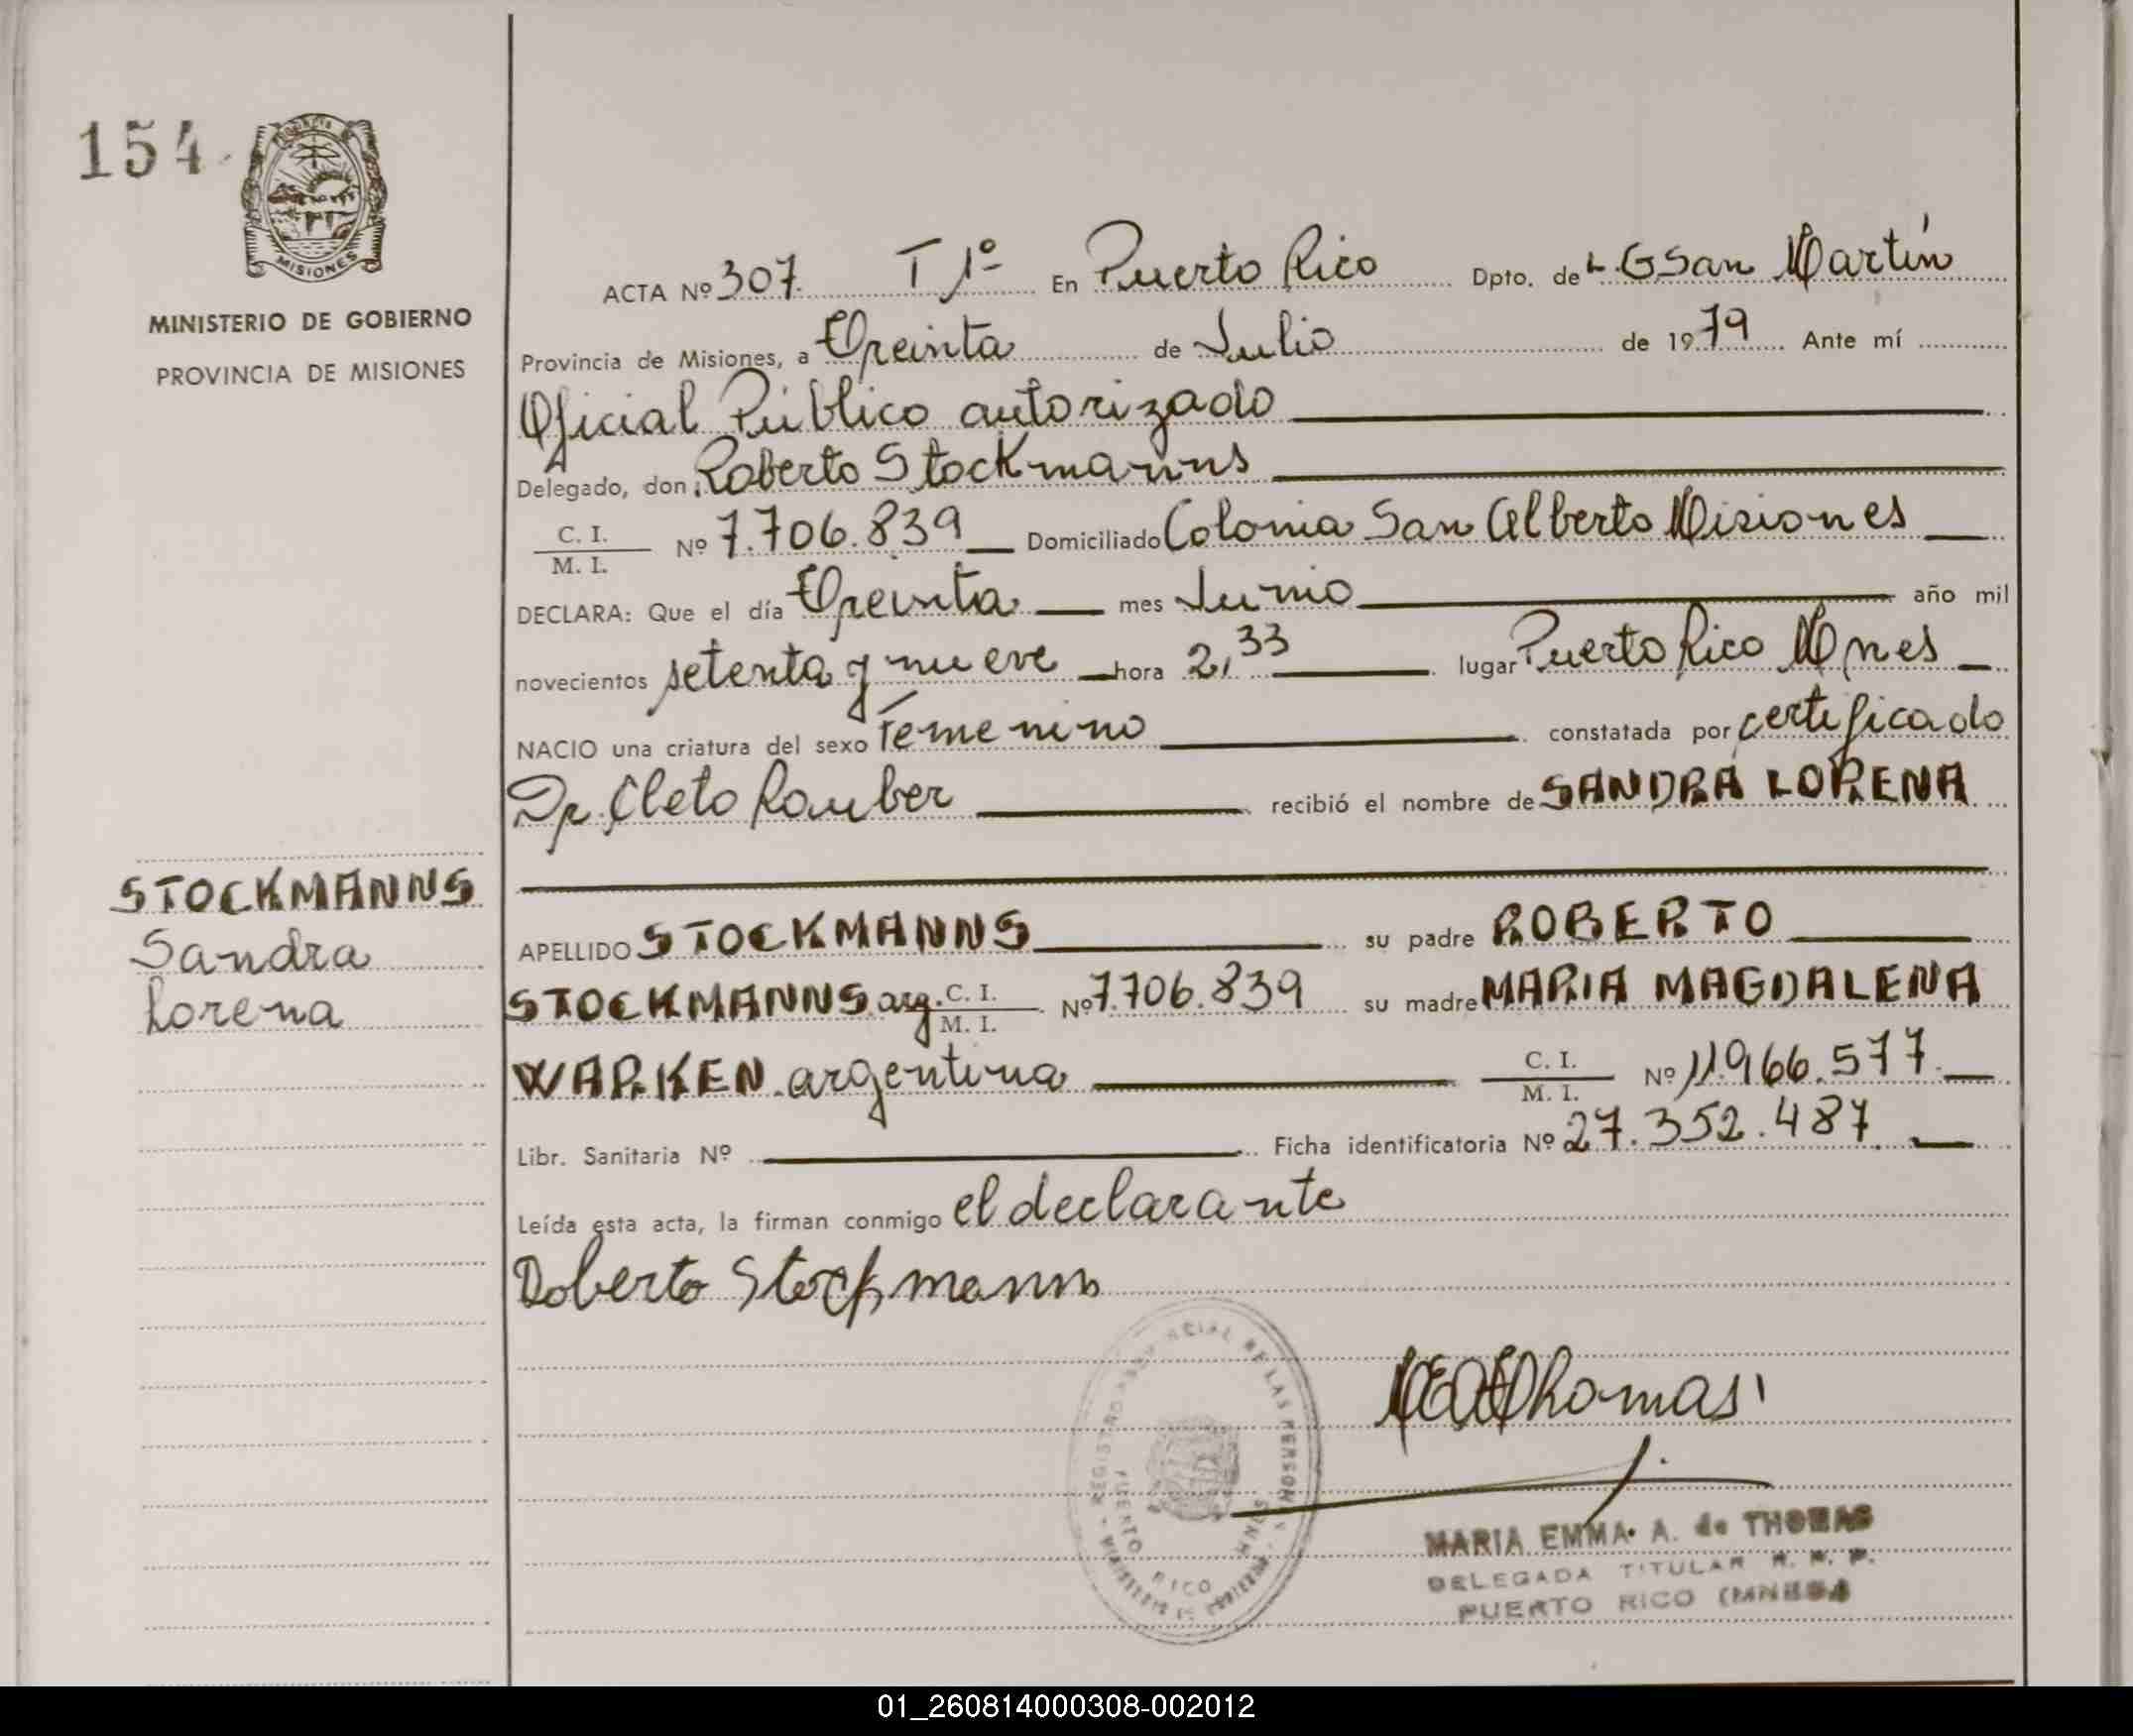 154
PROVINCIA DE
MISIONES
MINISTERIO DE GOBIERNO
PROVINCIA DE MISIONES
STOCKMANNS
Sandra
Lorena
ACTA Nº 307. T 1º En Puerto Rico Dpto. de L.G San Martín
Provincia de Misiones, a Treinta de Julio de 1979 Ante mí
Oficial Público autorizado
Delegado, don Roberto Stockmanns
C. I.
M. I. Nº 7.706.839 Domiciliado Colonia San Alberto Misiones
DECLARA: Que el día Treinta mes Junio año mil
novecientos setenta y nueve hora 2,33 lugar Puerto Rico Mnes
NACIO una criatura del sexo Femenino constatada por certificado
Dr. Cleto Rauber recibió el nombre de SANDRA LORENA
APELLIDO STOCKMANNS su padre ROBERTO
STOCKMANNS arg. C. I.
M. I. Nº 7.706.839 su madre MARIA MAGDALENA
WARKEN argentina C. I.
M. I. Nº 11.966.577
Libr. Sanitaria Nº Ficha identificatoria Nº 27.352.487
Leída esta acta, la firman conmigo el declarante
Roberto Stockmanns
Thomas
REGISTRO PROVINCIAL DE LAS PERSONAS
PUERTO RICO
MARIA EMMA A. de THOMAS
DELEGADA TITULAR R. P. P.
PUERTO RICO (MNES)
01_260814000308-002012